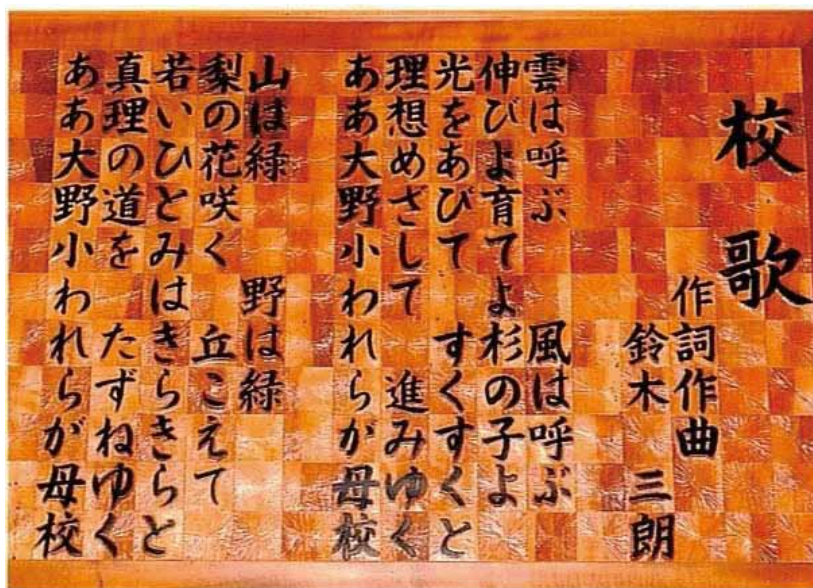 校歌
作詞作曲
鈴木 三朗
雲は呼ぶ 風は呼ぶ
伸びよ育てよ杉の子よ
光をあびて すくすくと
理想めざして 進みゆく
ああ大野小われらが母校
山は緑 野は緑
梨の花咲く 丘こえて
若いひとみはきらきらと
真理の道を たずねゆく
ああ大野小われらが母校